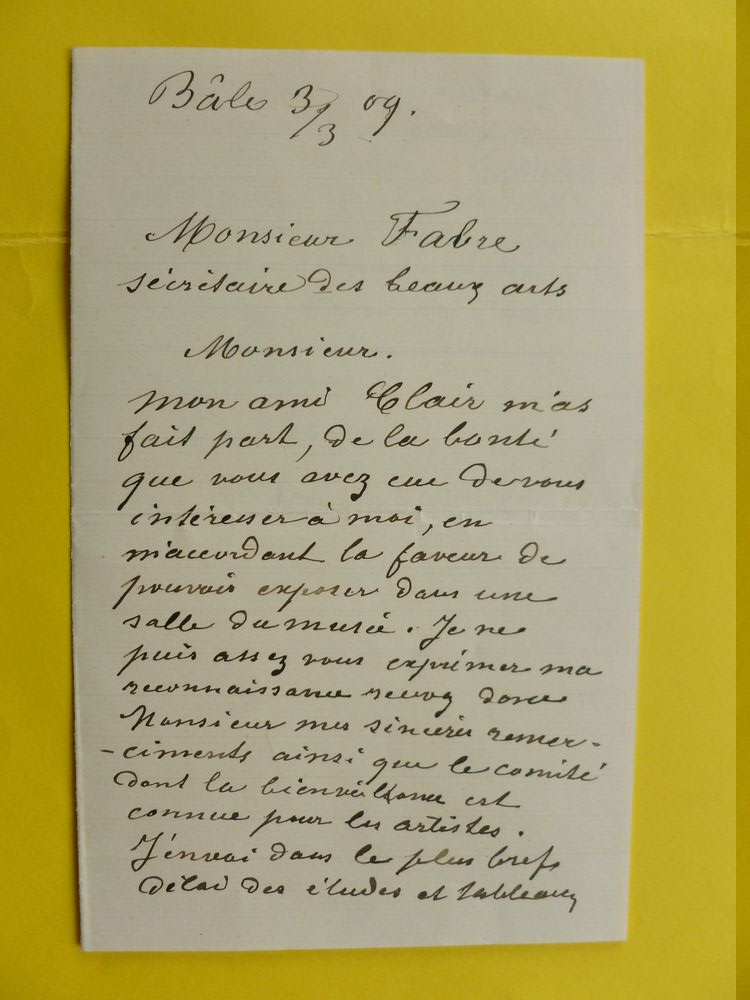 Bâle 3/3 09.
Monsieur Fabre
sécrétaire des beaux arts
Monsieur.
mon ami Clair m'as
fait part, de la bonté
que vous avez eue de vous
intéresser à moi, en
m'accordant la faveur de
pouvoir exposer dans une
salle du musée. Je ne
puis assez vous exprimer ma
reconnaissance recevez donc
Monsieur mes sincères remer-
-ciments ainsi que le comité
dont la bienveillance est
connue pour les artistes.
J'envoi dans le plus brefs
délai des études et tableaux